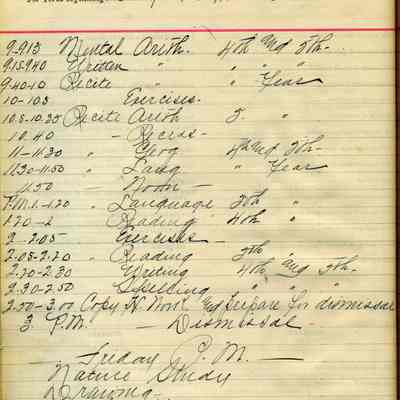 9-9.15 Mental Arith. 4th and 5th.
9.15-9.40 Written " " " "
9.40-10 Recite " " Year
10-10.5 Exercises.
10.5-10.35 Recite Arith 5. "
10.40 - Recess -
11-11.30 " Geog 4th and 5th.
11.30-11.50 " Lang " Year
11.50 - Noon -
P.M. 1-1.20 " Language 5th "
1.20-2 " Reading 4th "
2-2.05 Exercises -
2.05-2.20 " Reading 5th
2.20-2.30 Writing 4th and 5th.
2.30-2.50 Spelling " " "
2.50-3.00 Copy H. Work and Prepare for dismissal
3 P.M. - Dismissal -
- Friday P.M. -
Nature Study
Drawing -